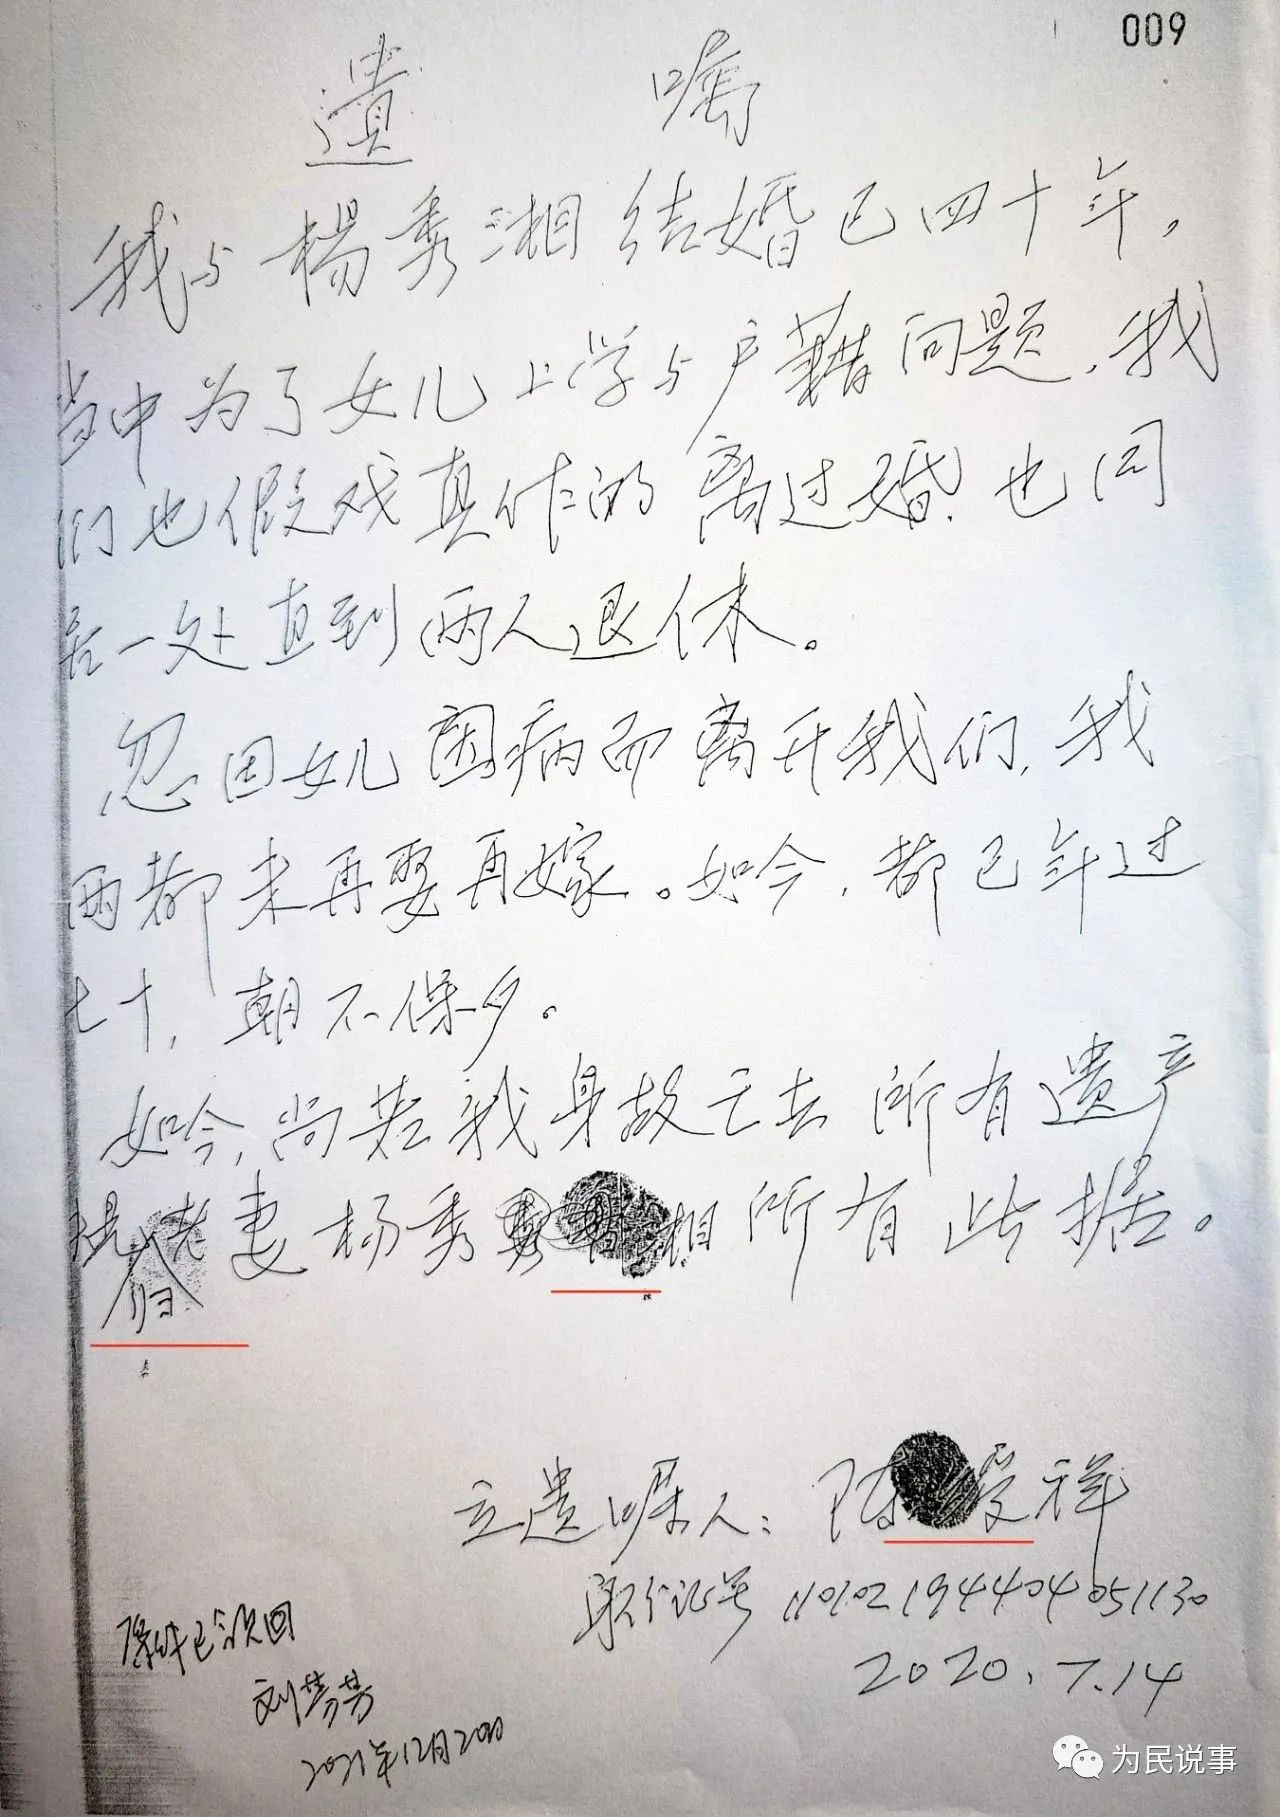 009
遗 嘱
我与杨秀湘结婚已四十年,
当中为了女儿上学与户藉问题,我
们也假戏真作的离过婚,也同
居一处直到两人退休。
忽因女儿因病而离开我们,我
两都未再娶再嫁。如今,都已年过
七十,朝不保夕。
如今,尚若我身故亡去所有遗产
老妻杨秀湘所有 此据。
归
立遗嘱人: 陈爱祥
身份证号 110102194404051130
2020.7.14
原件已领回
刘芳
2021年12月20日
为民说事